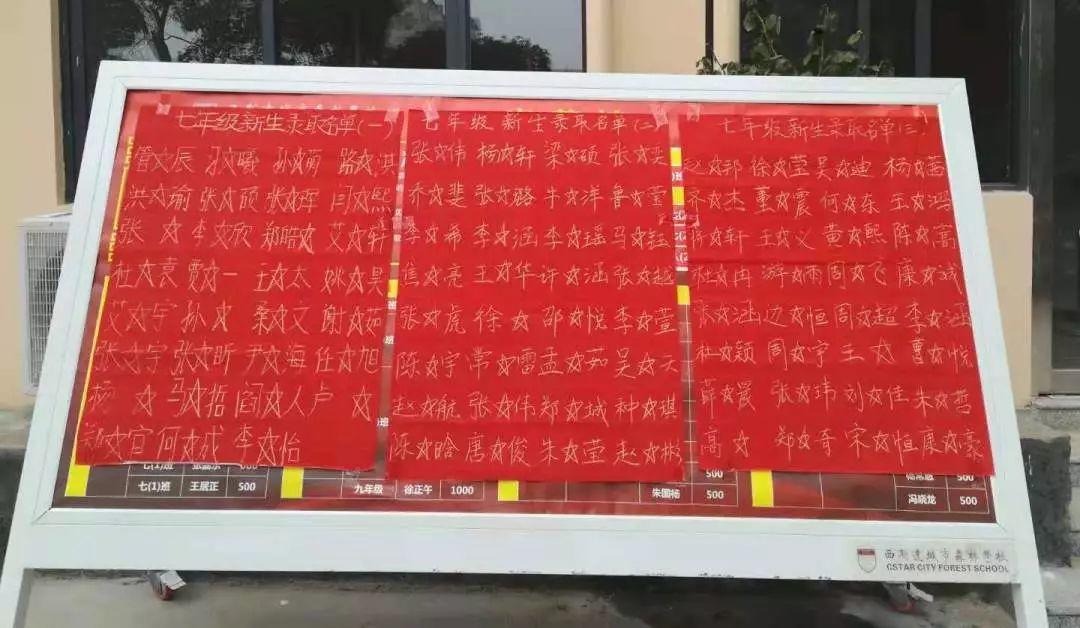 七年级新生录取名单(一)
管☆辰 孙☆曦 孙☆萌 路☆淇
洪☆瑜 张☆硕 张☆晖 闫☆熙
张 ☆ 李☆欣 郑皓☆ 艾☆轩
杜☆袁 贾☆一 王☆太 姚☆昊
艾☆宇 孙 ☆ 桑☆文 谢☆茹
张☆宇 张☆昕 尹☆海 任☆旭
杨 ☆ 马☆哲 阎☆人 卢 ☆
郑☆宜 何☆成 李☆怡
七年级 新生录取名单(二)
张☆伟 杨☆轩 梁☆硕 张☆奕
乔☆斐 张☆璐 牛☆洋 鲁☆莹
李☆希 李☆涵 李☆瑶 马☆钰
焦☆亮 王☆华 许☆涵 张☆越
张☆虎 徐 ☆ 邵☆悦 李☆萱
陈☆宇 常☆雷 孟☆茹 吴☆天
赵☆航 张☆伟 郑☆城 种☆琪
陈☆晗 唐☆俊 朱☆莹 赵☆彬
七年级新生录取名单(三)
赵☆邦 徐☆莹 吴☆迪 杨☆茜
齐☆杰 董☆震 何☆东 王☆鸿
☆轩 王☆义 黄☆熙 陈☆蒿
杜☆冉 游☆雨 周☆飞 康☆斌
张☆涵 边☆恒 周☆超 李☆涵
杜☆颖 周☆宇 王 ☆ 曹☆悦
薛☆晨 张☆玮 刘☆佳 朱☆哲
高 ☆ 郑☆奇 宋☆恒 康☆豪
七(1)班 王展正 500
九年级 徐正午 1000
500
朱国杨 500
500
冯晓龙 500
城市森林学校
GSTAR CITY FOREST SCHOOL